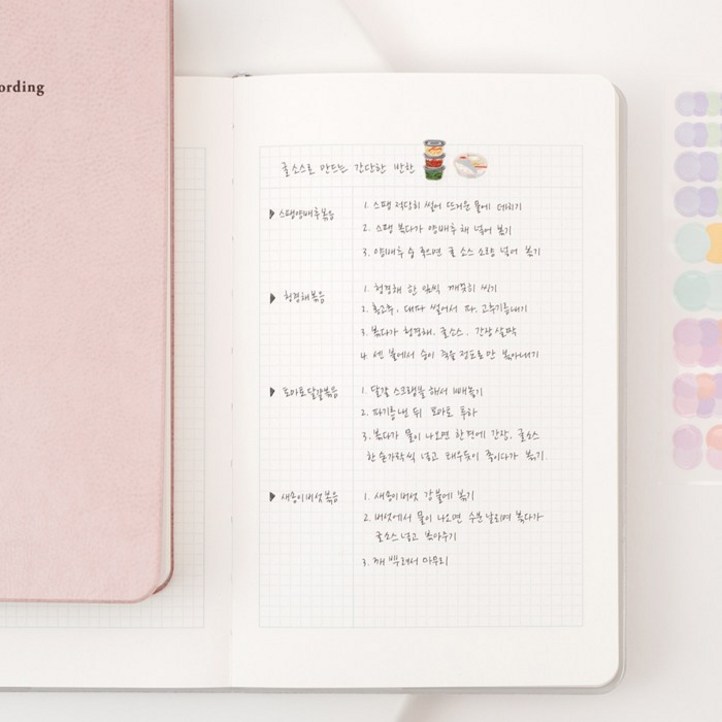 ording
굴소스로 만드는 간단한 반찬
▶ 스팸양배추볶음
1. 스팸 적당히 썰어 뜨거운 물에 데치기
2. 스팸 볶다가 양배추 채 넣어 볶기
3. 양배추 숨 죽으면 굴 소스 소량 넣어 볶기
▶ 청경채볶음
1. 청경채 한 잎씩 깨끗히 씻기
2. 홍고추, 대파 썰어서 파, 고추기름내기
3. 볶다가 청경채, 굴소스, 간장 살짝
4. 센 불에서 숨이 죽을 정도로만 볶아내기
▶ 토마토달걀볶음
1. 달걀 스크램블 해서 빼놓기
2. 파기름 낸 뒤 토마토 투하
3. 볶다가 물이 나오면 한켠에 간장, 굴소스
한 숟가락씩 넣고 태우듯이 졸이다가 볶기.
▶ 새송이버섯볶음
1. 새송이버섯 강불에 볶기
2. 버섯에서 물이 나오면 수분 날리며 볶다가
굴소스 넣고 볶아주기
3. 깨 뿌려서 마무리